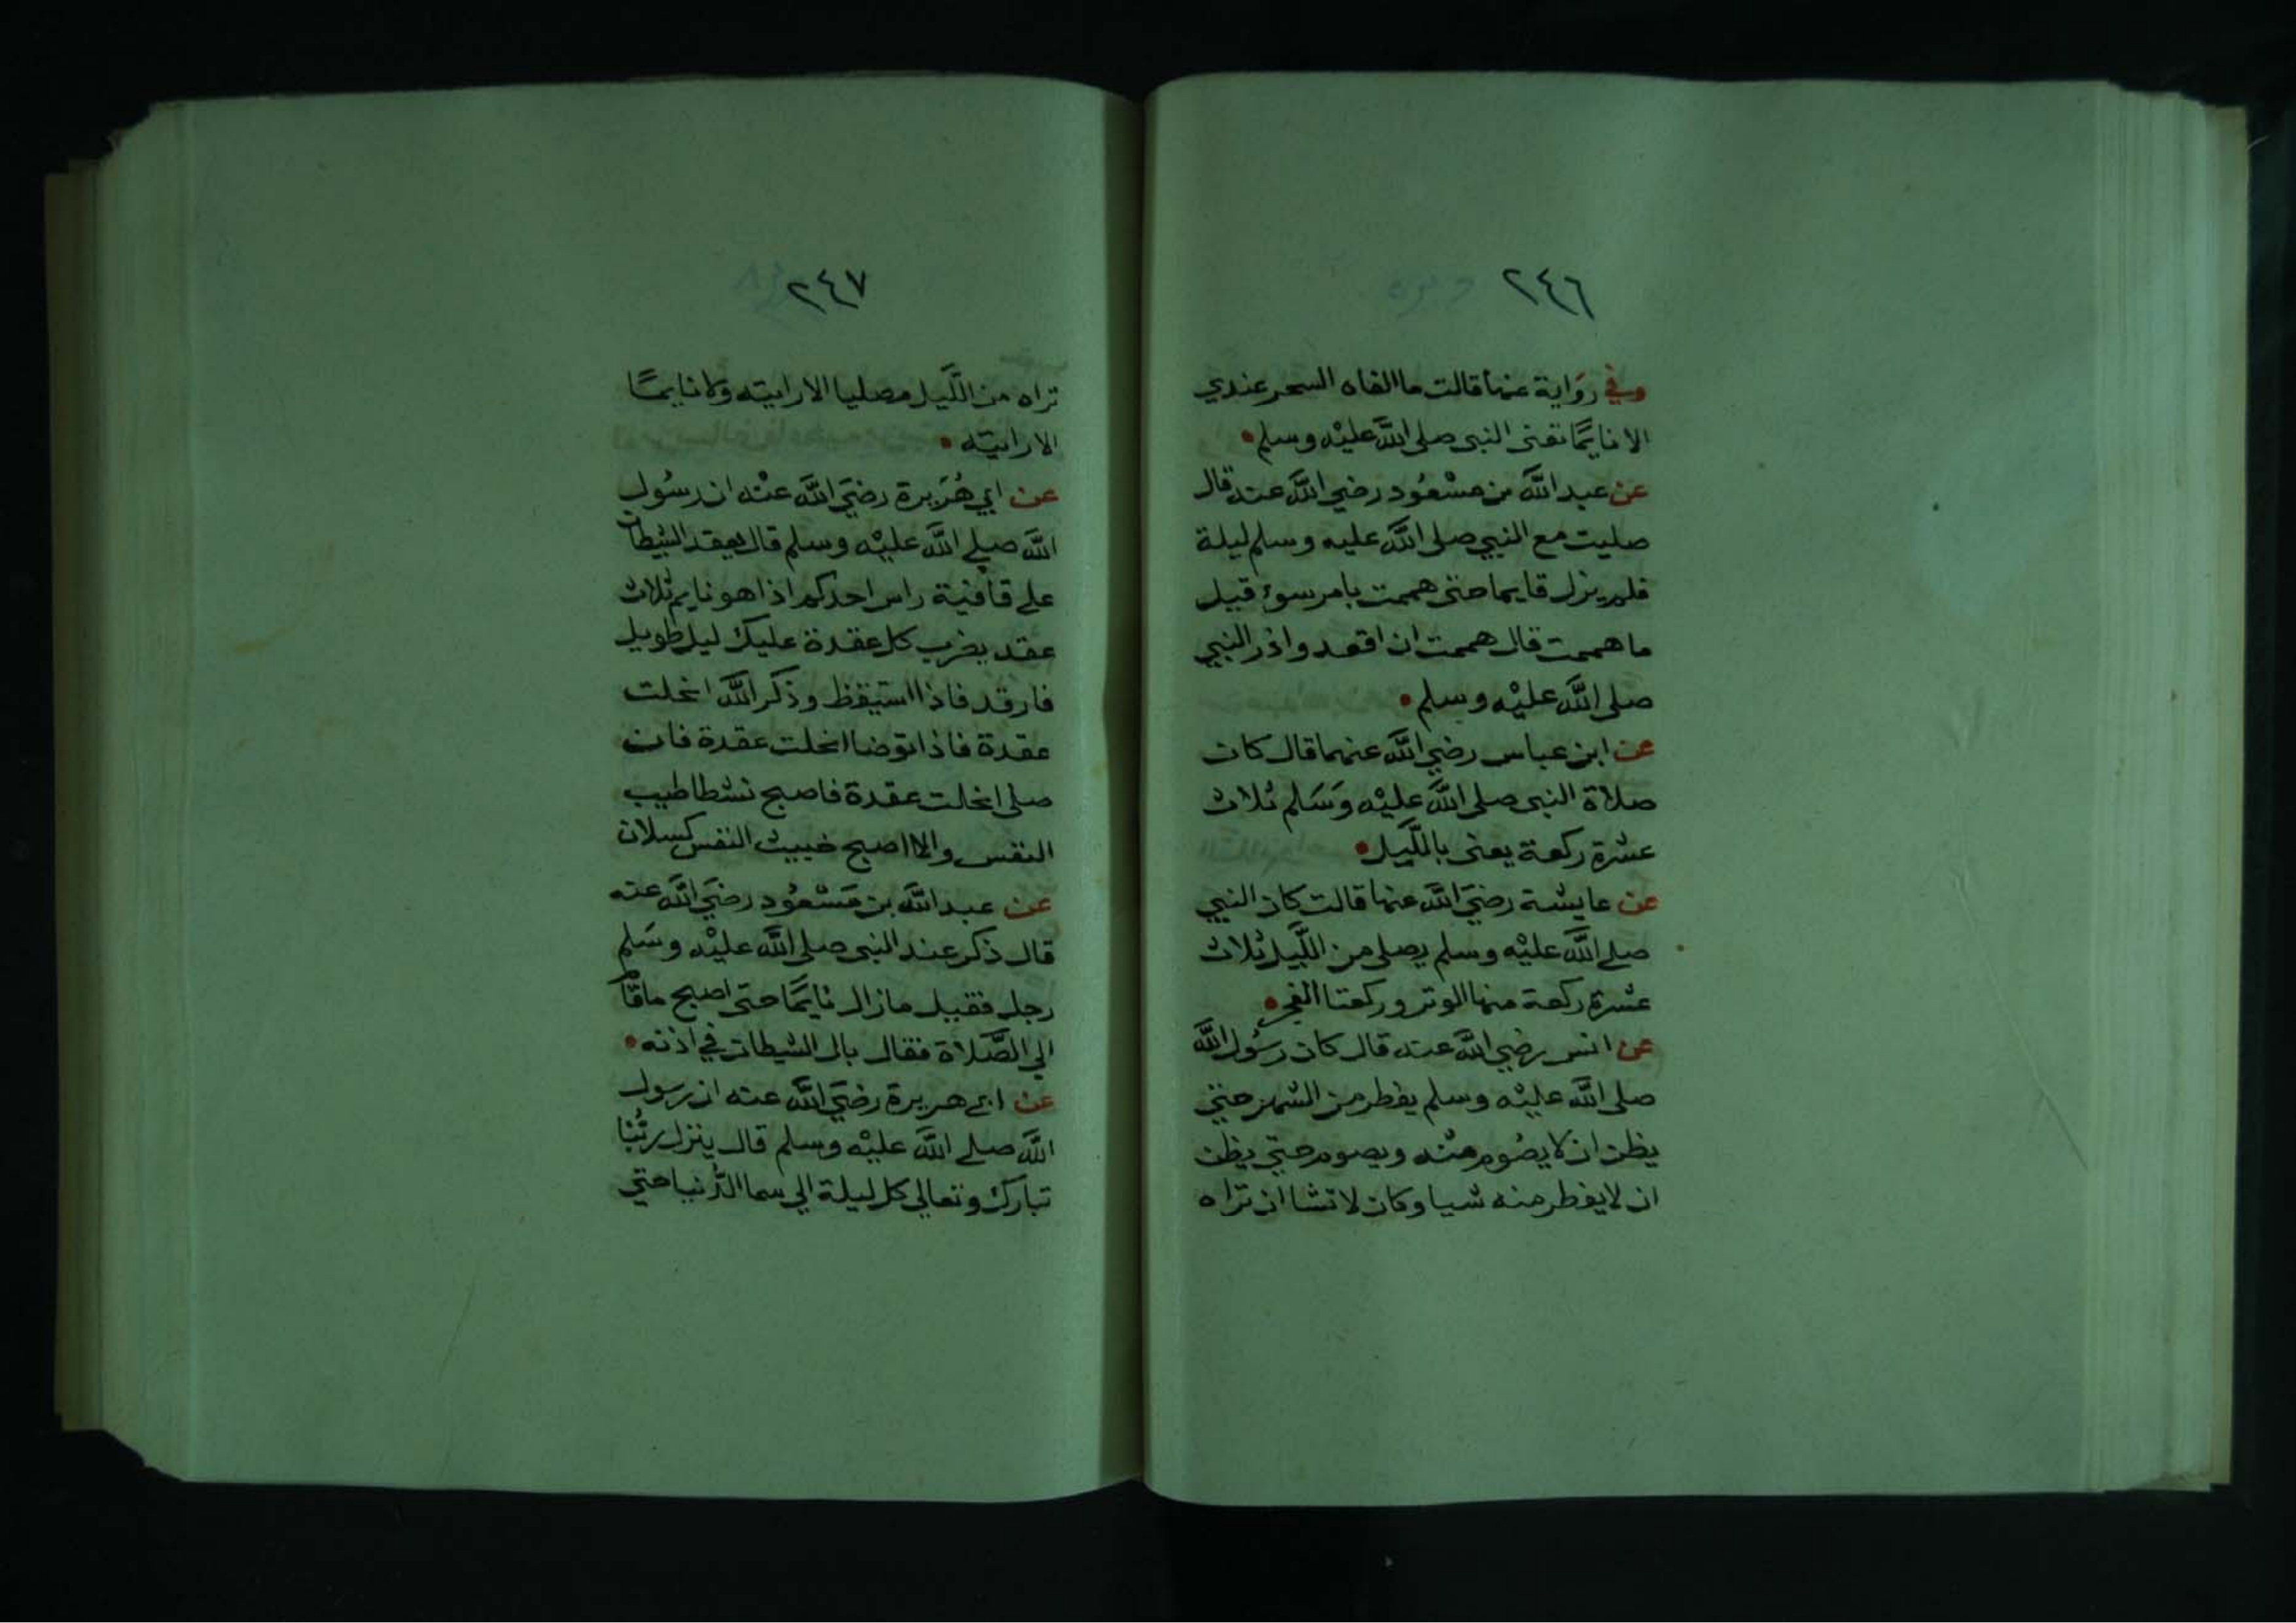 ٢٤٦
وفي رواية عنها قالت ما الفاه السحر عندي
الا نايمًا تعنى النبى صلى اللَّه عليْه وسلم
عن عبد اللَّه بن مسْعُود رضي اللَّه عنه قال
صليت مع النبي صلى اللَّه عليه وسلم ليلة
فلم يزل قايما حتى هممت بامر سوء قيل
ما هممت قال هممت ان اقعد واذر النبي
صلى اللَّه عليْه وسلم
عن ابن عباس رضي اللَّه عنهما قال كان
صلاة النبى صلى اللَّه عليْه وَسَلم ثلاث
عشرة ركعة يعنى بالَّليل
عن عايشة رضيَ اللَّه عنها قالت كان النبي
صلى اللَّه عليْه وسلم يصلى من اللَّيل ثلاث
عشرة ركعة منها الوتر وركعتا الفجر
عن انس رضي اللَّه عنه قال كان رسُول اللَّه
صلى اللَّه عليْه وسلم يفطر من الشهر حتى
يظن ان لا يصُوم منْه ويصوم حتى يظن
ان لا يفطر منه شيا وكان لا تشا ان تراه
٢٤٧
تراه من اللَّيل مصليا الا رايته ولا نايمًا
الا رايته
عن ابي هُرَيرة رضيَ اللَّه عنْه ان رسُول
اللَّه صلى اللَّه عليْه وسلم قال يعقد الشيطان
على قافية راس احدكم اذا هو نايم ثلاث
عقد يضرب كل عقدة عليك ليل طويل
فارقد فاذا استيقظ وذكر اللَّه انحلت
عقدة فاذا توضا انحلت عقدة فان
صلى انحلت عقدة فاصبح نشطا طيب
النفس والا اصبح خبيث النفس كسلان
عن عبد اللَّه بن مَسْعُود رضيَ اللَّه عنه
قال ذكر عند النبى صلى اللَّه عليْه وسَلم
رجل فقيل ما زال نايمًا حتى اصبح ما قام
الي الصَّلاة فقال بال الشيطان في اذنه
عن ابي هريرة رضيَ اللَّه عنه ان رسول
اللَّه صلى اللَّه عليْه وسلم قال ينزل ربُّنا
تبارك وتعالي كل ليلة الي سما الدُّنيا حتي